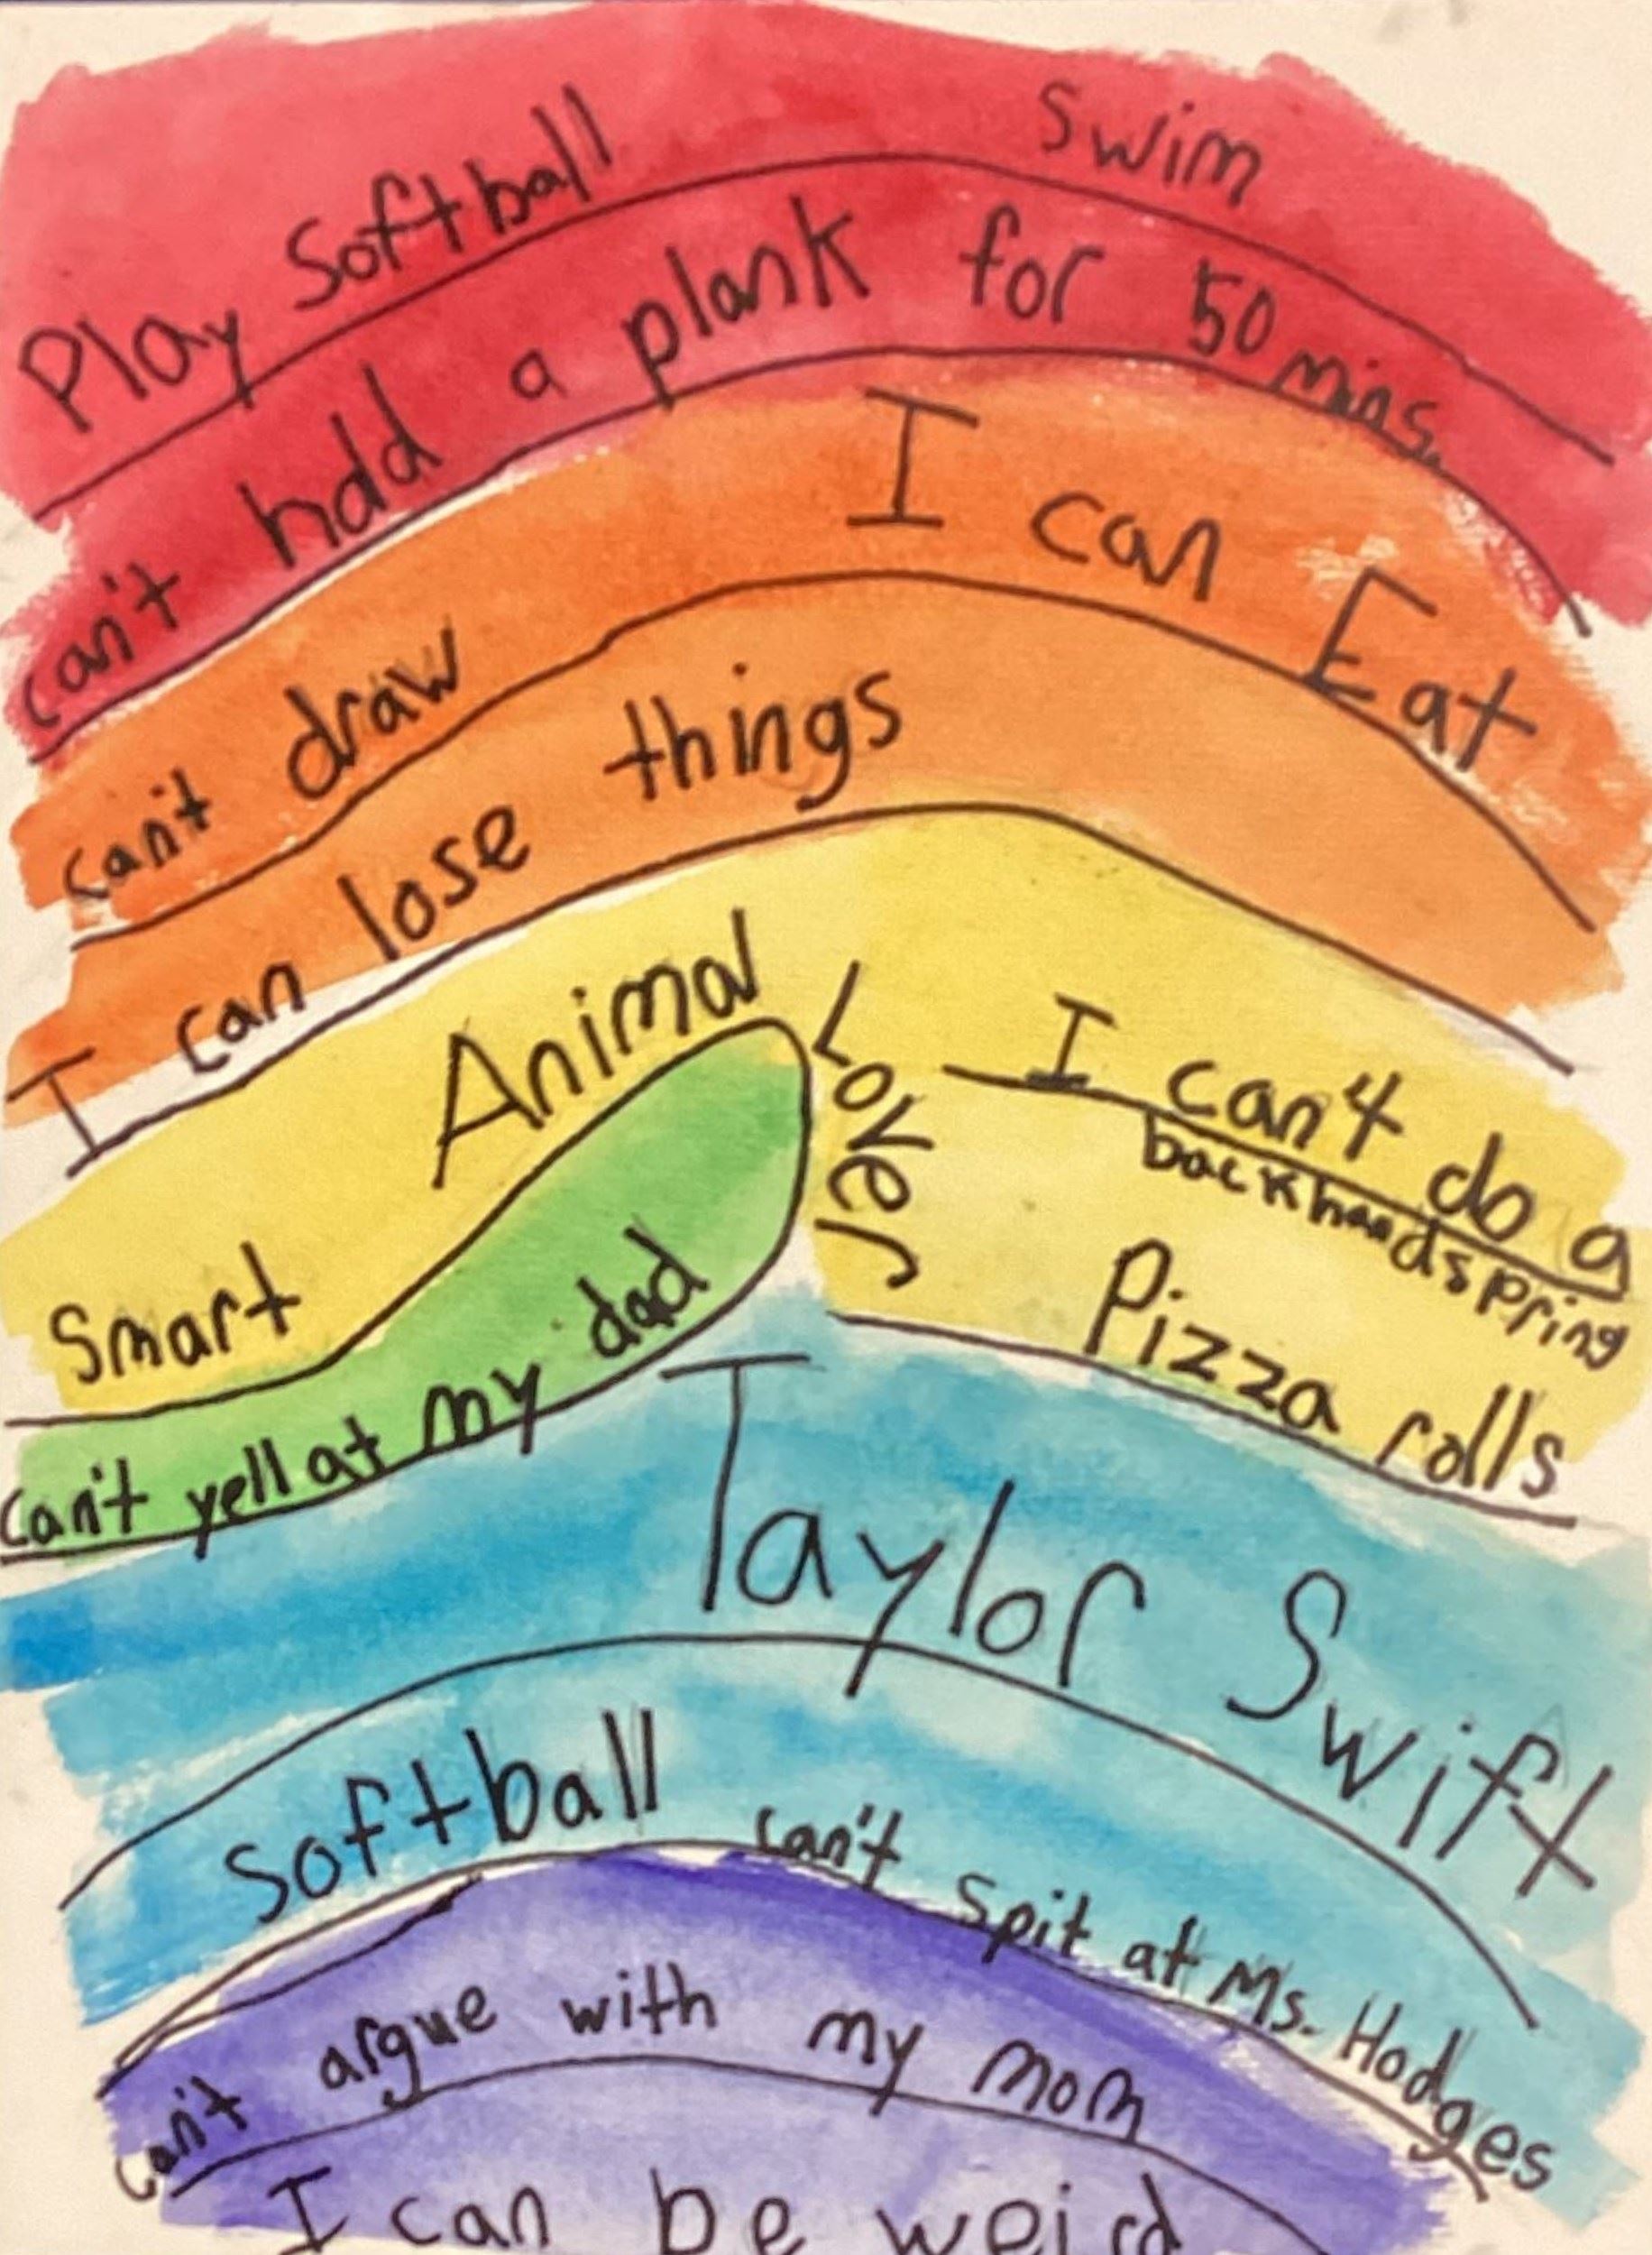 Play Softball
Swim
can't hold a plank for 50 mins.
can't draw
I can Eat
I can lose things
Smart
Animal Lover
I can't do a backhandspring
Pizza rolls
can't yell at my dad
Taylor Swift
Softball
can't spit at Ms. Hodges
can't argue with my mom
I can be weird